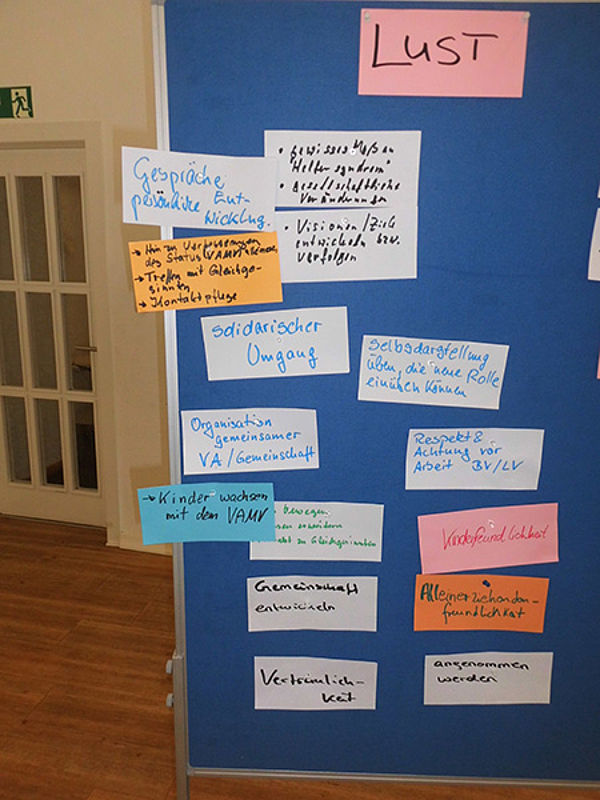 LUST
• gewisses Maß an
"Helfersyndrom"
• gesellschaftliche
Veränderungen
Gespräche
persönliche Ent-
wicklung.
• Visionen/Ziele
entwickeln bzw.
verfolgen
→ Hin zu Verbesserungen
des Status VAMV
→ Treffen mit Gleichge-
sinnten
→ Kontaktpflege
solidarischer
Umgang
Selbsdarstellung
üben, die neue Rolle
einüben können
Organisation
gemeinsamer
VA/Gemeinschaft
Respekt &
Achtung vor
Arbeit BV/LV
→ Kinder wachsen
mit dem VAMV
bewegen
erweitern
zu Gleichgesinnten
Kinderfreundlichkeit
Gemeinschaft
entwickeln
Alleinerziehenden-
freundlichkeit
Vertraulich-
keit
angenommen
werden